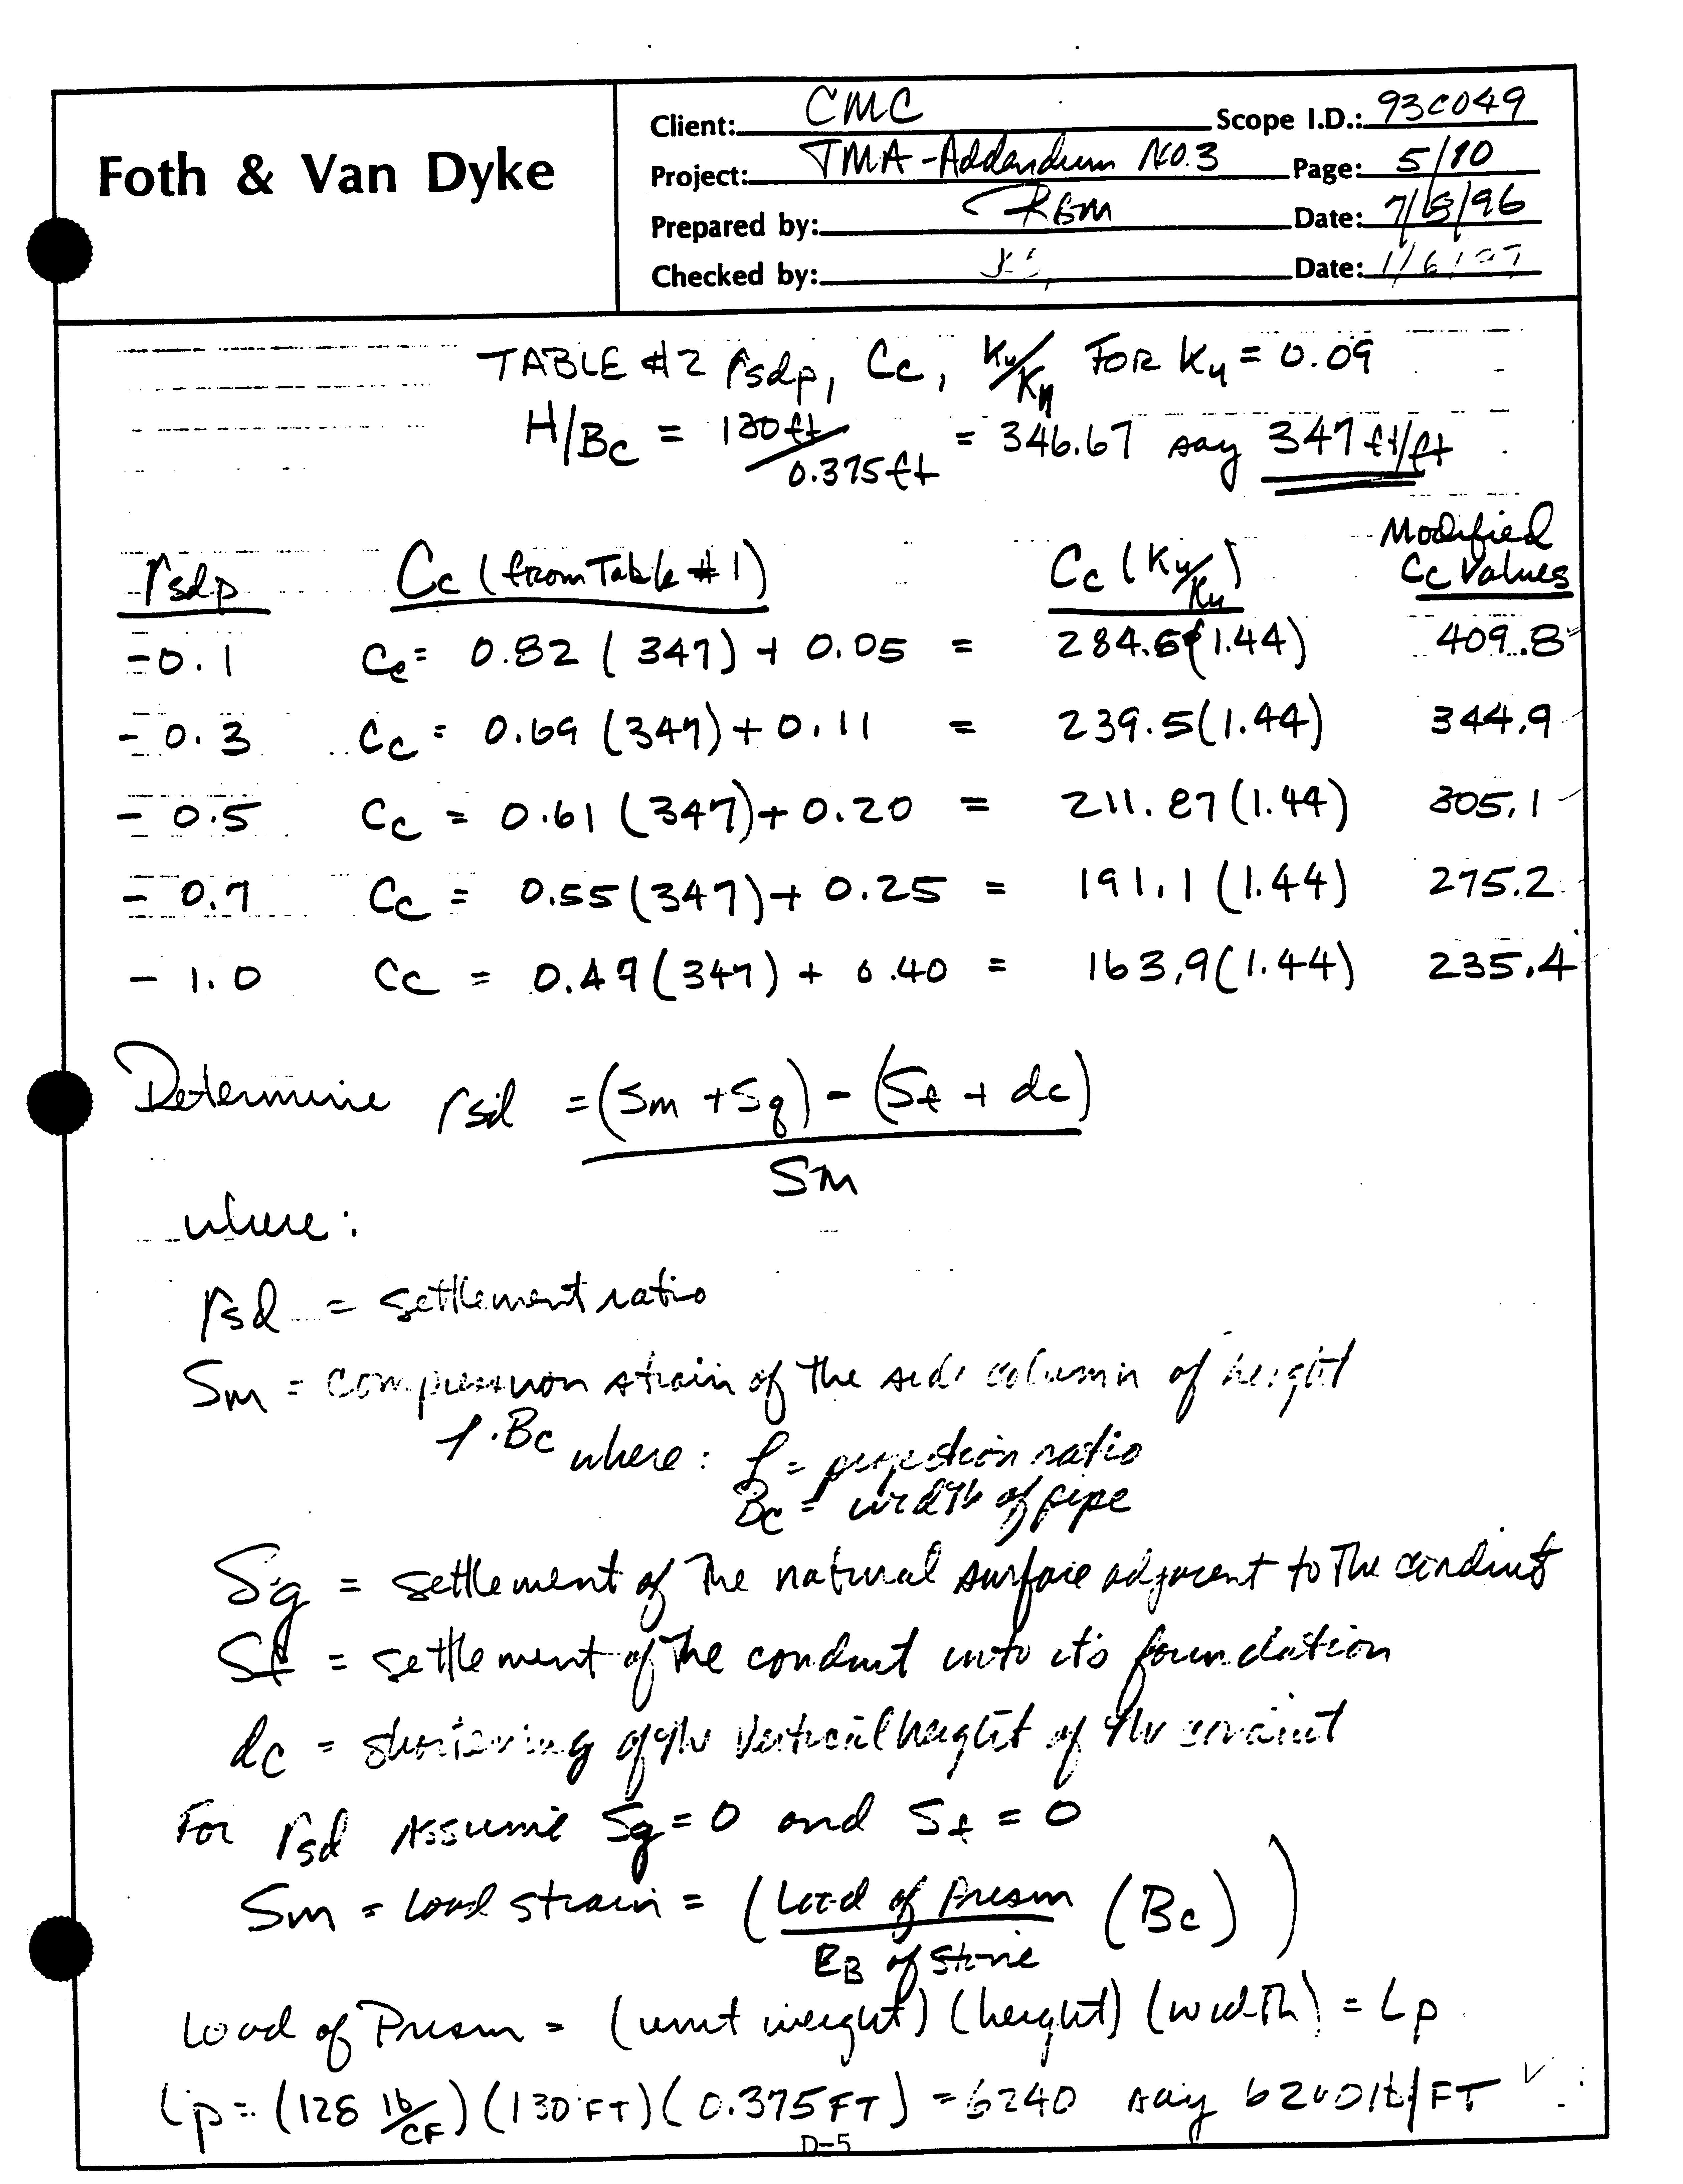 Foth & Van Dyke
Client: CMC Scope I.D.: 93C049
Project: TMA-Addendum No.3 Page: 5/10
Prepared by: RGM Date: 7/18/96
Checked by: Date: 1/6/97
TABLE #2 rsdp, Cc, Ku/Ku FOR Ku = 0.09
H/Bc = 130ft/0.375ft = 346.67 say 347 ft/ft
rsdp Cc (from Table #1) Cc (Ku/Ku) Modified Cc Values
-0.1 Cc = 0.82 (347) + 0.05 = 284.6(1.44) 409.8
-0.3 Cc = 0.69 (347) + 0.11 = 239.5(1.44) 344.9
-0.5 Cc = 0.61 (347) + 0.20 = 211.87(1.44) 305.1
-0.7 Cc = 0.55(347) + 0.25 = 191.1 (1.44) 275.2
-1.0 Cc = 0.47(347) + 0.40 = 163.9(1.44) 235.4
Determine rsd = (Sm + Sg) - (Sf + dc)
Sm
where:
rsd = settlement ratio
Sm = compression strain of the side column of height
f·Bc where: f = projection ratio
Bc = width of pipe
Sg = settlement of the natural surface adjacent to the conduit
Sf = settlement of the conduit into it's foundation
dc = shortening of the vertical height of the conduit
For rsd Assume Sg = 0 and Sf = 0
Sm = load strain = (Load of Prism (Bc))
EB of stone
Load of Prism = (unit weight) (height) (width) = Lp
Lp = (128 lb/CF) (130 FT) (0.375 FT) = 6240 say 6240 lb/FT
D-5